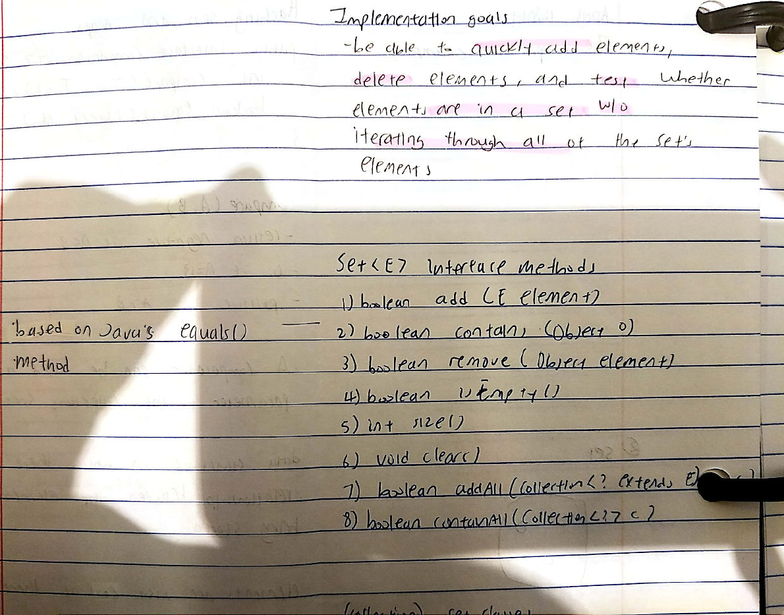 Implementation goals
-be able to quickly add elements,
delete elements, and test whether
elements are in a set w/o
iterating through all of the set's
elements
Set<E> Interface methods
1) boolean add (E element)
based on Java's equals() — 2) boolean contains (Object o)
method 3) boolean remove (Object element)
4) boolean isEmpty()
5) int size()
6) void clear()
7) boolean addAll (Collection<? extends E> c)
8) boolean containAll (Collection<?> c)